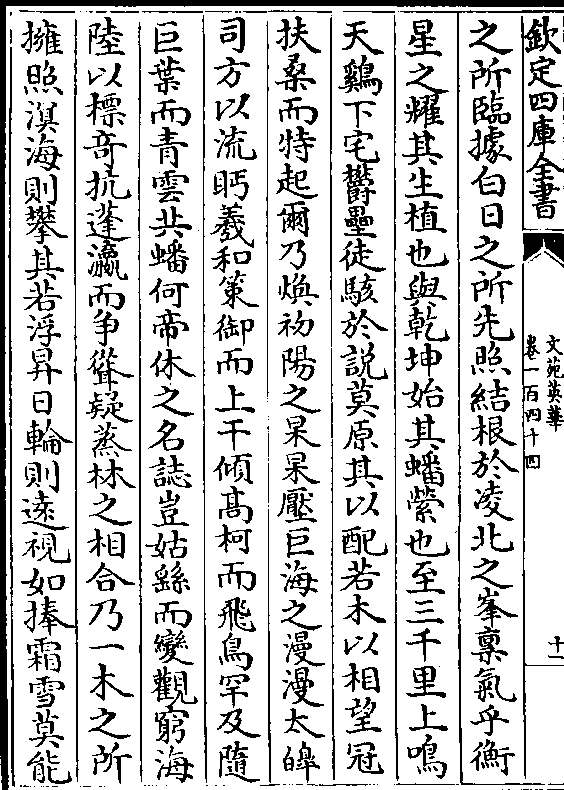 欽定四庫全書
文苑英華
卷一百四十四
十一
之所臨據白日之所先照結根於凌北之峯禀氣乎衡
星之耀其生植也與乾坤始其蟠縈也至三千里上鳴
天鷄下宅鬱壘徒駭於說莫原其以配若木以相望冠
扶桑而特起爾乃煥初陽之杲杲壓巨海之漫漫太皥
司方以流眄羲和策御而上干傾髙柯而飛鳥罕及隨
巨葉而青雲共蟠何帝休之名誌豈姑繇而變觀窮海
陸以標竒抗蓬瀛而争聳疑蒸林之相合乃一木之所
擁照溟海則攀其若浮昇日輪則逺視如捧霜雪莫能